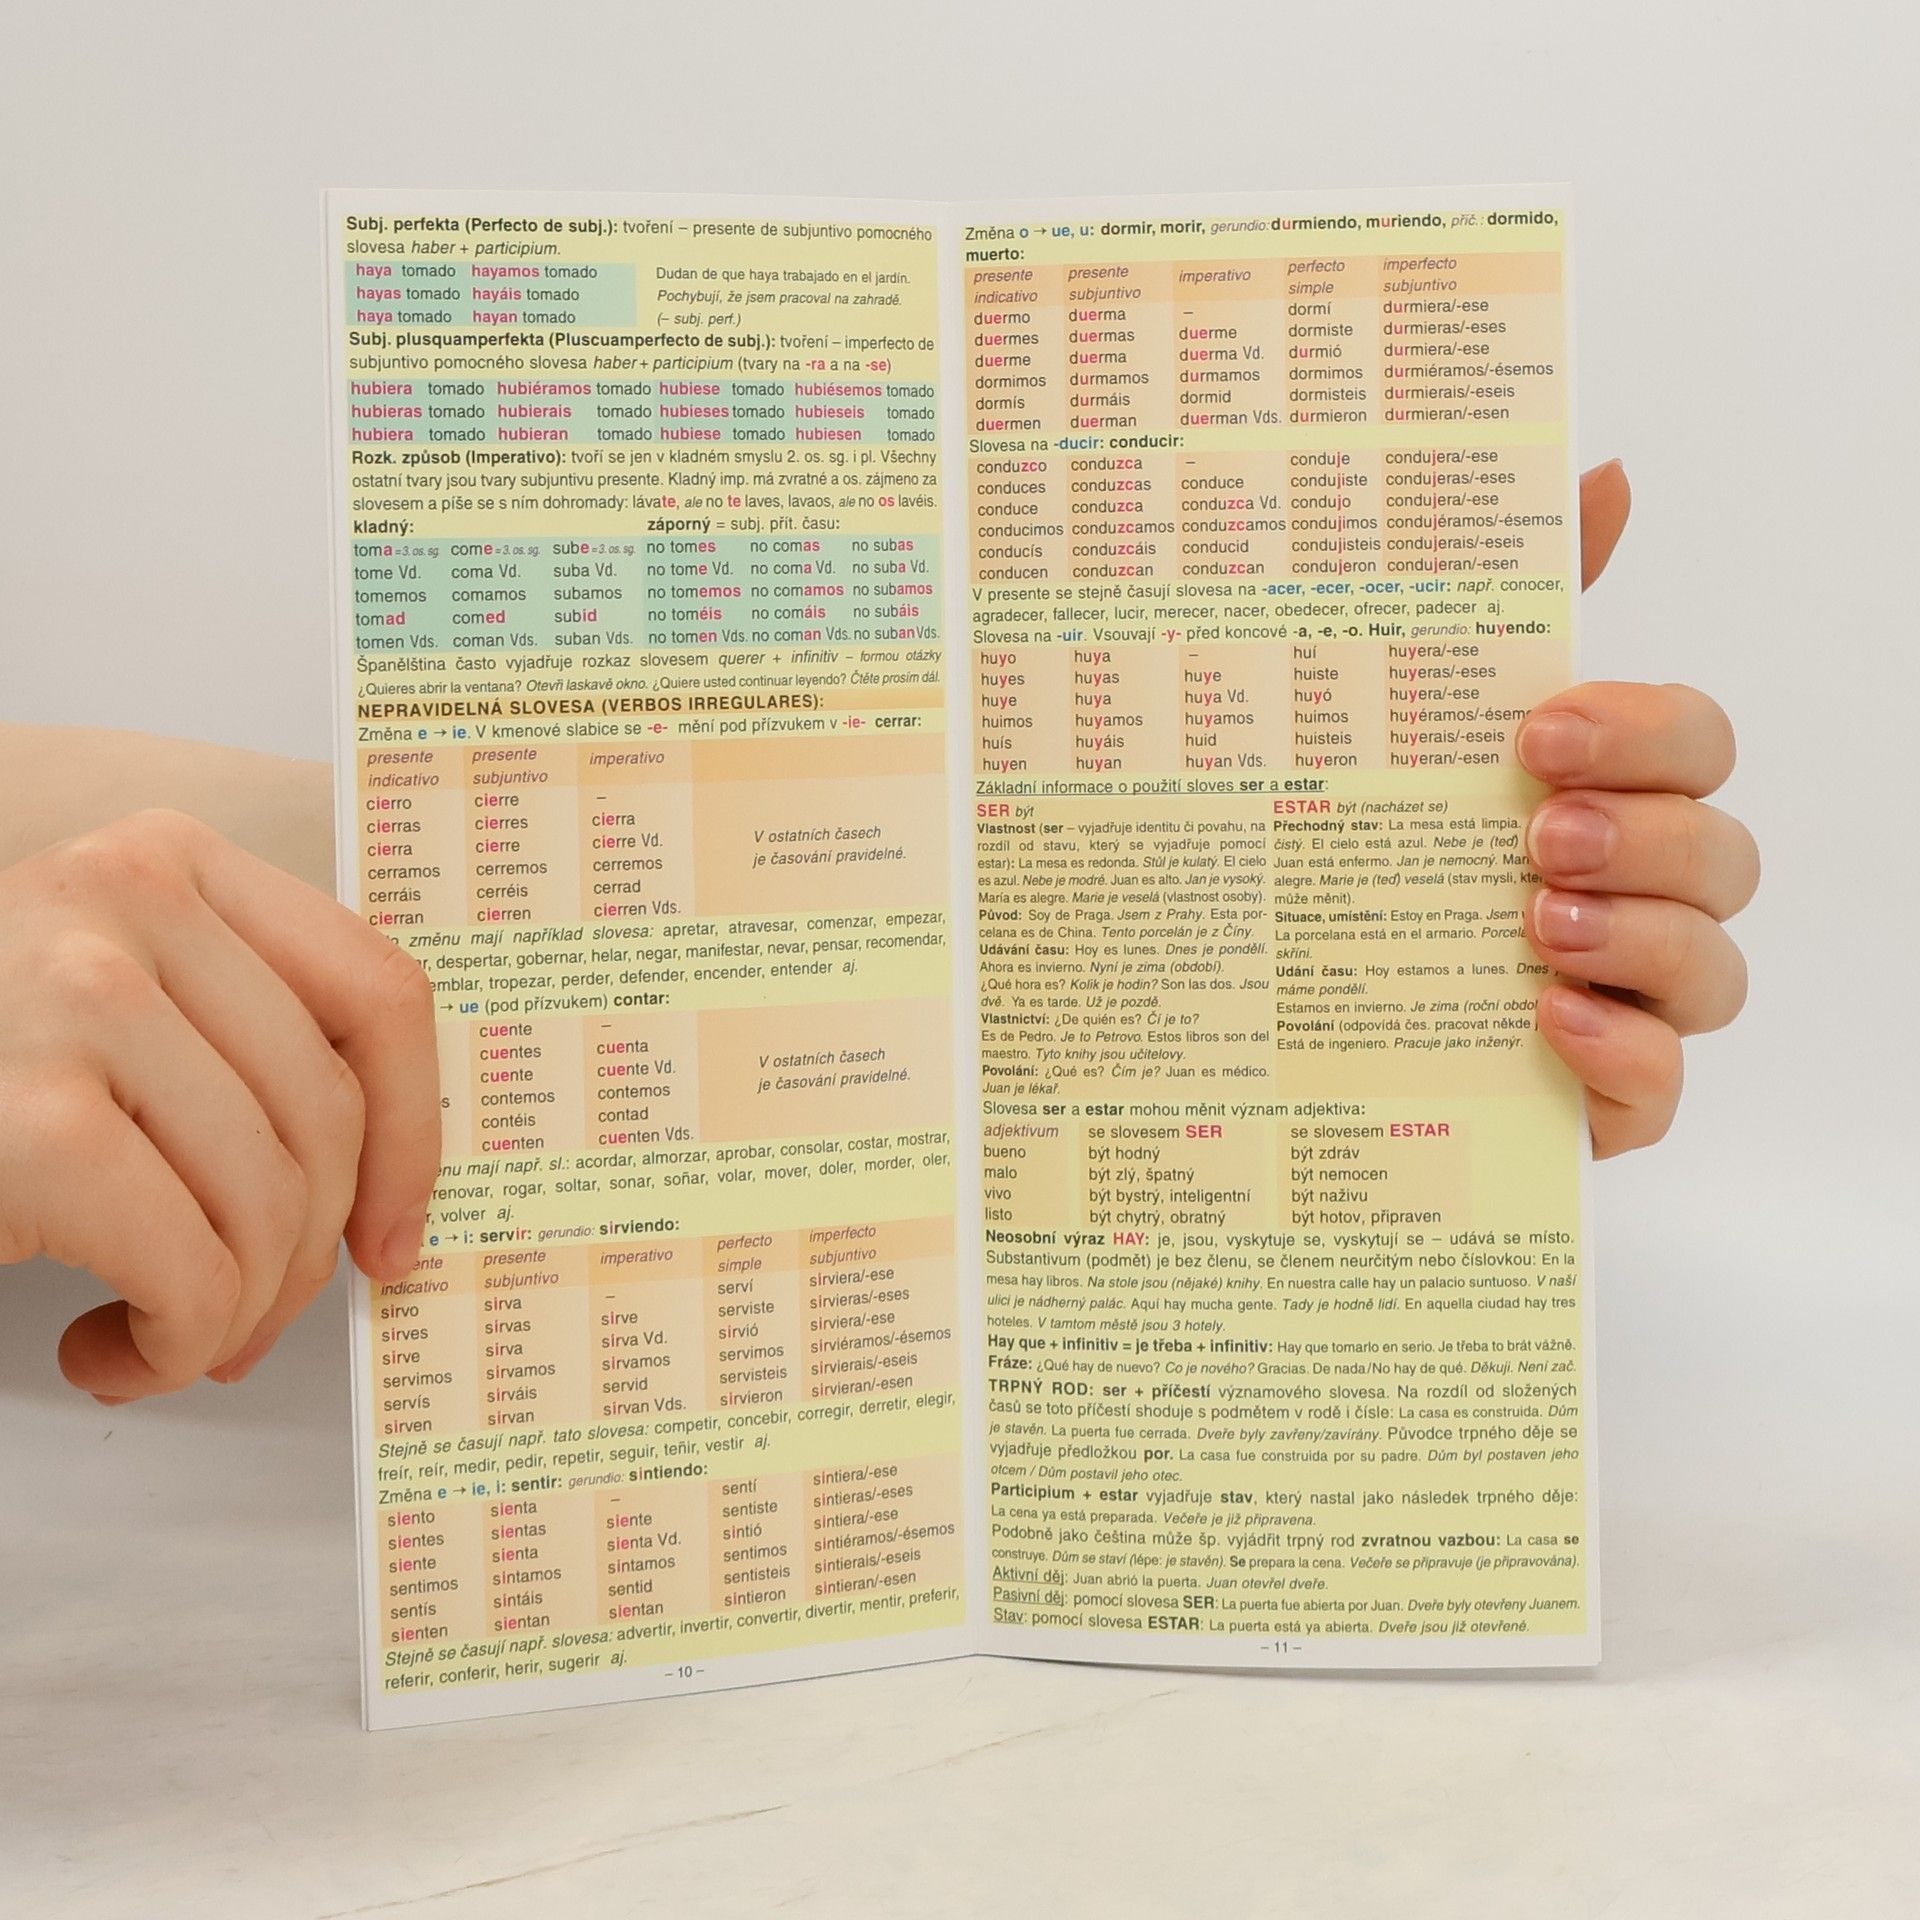 Subj. perfekta (Perfecto de subj.): tvoření – presente de subjuntivo pomocného
slovesa haber + participium.
haya tomado hayamos tomado Dudan de que haya trabajado en el jardín.
hayas tomado hayáis tomado Pochybují, že jsem pracoval na zahradě.
haya tomado hayan tomado (– subj. perf.)
Subj. plusquamperfekta (Pluscuamperfecto de subj.): tvoření – imperfecto de
subjuntivo pomocného slovesa haber + participium (tvary na -ra a na -se)
hubiera tomado hubiéramos tomado hubiese tomado hubiésemos tomado
hubieras tomado hubierais tomado hubieses tomado hubieseis tomado
hubiera tomado hubieran tomado hubiese tomado hubiesen tomado
Rozk. způsob (Imperativo): tvoří se jen v kladném smyslu 2. os. sg. i pl. Všechny
ostatní tvary jsou tvary subjuntivu presente. Kladný imp. má zvratné a os. zájmeno za
slovesem a píše se s ním dohromady: lávate, ale no te laves, lavaos, ale no os lavéis.
kladný: záporný = subj. přít. času:
toma =3. os. sg. come =3. os. sg. sube =3. os. sg. no tomes no comas no subas
tome Vd. coma Vd. suba Vd. no tome Vd. no coma Vd. no suba Vd.
tomemos comamos subamos no tomemos no comamos no subamos
tomad comed subid no toméis no comáis no subáis
tomen Vds. coman Vds. suban Vds. no tomen Vds. no coman Vds. no suban Vds.
Španělština často vyjadřuje rozkaz slovesem querer + infinitiv – formou otázky
¿Quieres abrir la ventana? Otevři laskavě okno. ¿Quiere usted continuar leyendo? Čtěte prosím dál.
NEPRAVIDELNÁ SLOVESA (VERBOS IRREGULARES):
Změna e → ie. V kmenové slabice se -e- mění pod přízvukem v -ie- cerrar:
presente presente imperativo
indicativo subjuntivo
cierro cierre –
cierras cierres cierra
cierra cierre cierre Vd. V ostatních časech
cerramos cerremos cerremos je časování pravidelné.
cerráis cerréis cerrad
cierran cierren cierren Vds.
změnu mají například slovesa: apretar, atravesar, comenzar, empezar,
despertar, gobernar, helar, negar, manifestar, nevar, pensar, recomendar,
tropezar, perder, defender, encender, entender aj.
→ ue (pod přízvukem) contar:
cuente –
cuentes cuenta
cuente cuente Vd. V ostatních časech
contemos contemos je časování pravidelné.
contéis contad
cuenten cuenten Vds.
mají např. sl.: acordar, almorzar, aprobar, consolar, costar, mostrar,
renovar, rogar, soltar, sonar, soñar, volar, mover, doler, morder, oler,
volver aj.
e → i: servir: gerundio: sirviendo:
presente imperativo perfecto imperfecto
indicativo subjuntivo simple subjuntivo
sirvo sirva – serví sirviera/-ese
sirves sirvas sirve serviste sirvieras/-eses
sirve sirva sirva Vd. sirvió sirviera/-ese
servimos sirvamos sirvamos servimos sirviéramos/-ésemos
servís sirváis servid servisteis sirvierais/-eseis
sirven sirvan sirvan Vds. sirvieron sirvieran/-esen
Stejně se časují např. tato slovesa: competir, concebir, corregir, derretir, elegir,
freír, reír, medir, pedir, repetir, seguir, teñir, vestir aj.
Změna e → ie, i: sentir: gerundio: sintiendo:
siento sienta – sentí sintiera/-ese
sientes sientas siente sentiste sintieras/-eses
siente sienta sienta Vd. sintió sintiera/-ese
sentimos sintamos sintamos sentimos sintiéramos/-ésemos
sentís sintáis sentid sentisteis sintierais/-eseis
sienten sientan sientan sintieron sintieran/-esen
Stejně se časují např. slovesa: advertir, invertir, convertir, divertir, mentir, preferir,
referir, conferir, herir, sugerir aj.
– 10 –
Změna o → ue, u: dormir, morir, gerundio: durmiendo, muriendo, příč.: dormido,
muerto:
presente presente imperativo perfecto imperfecto
indicativo subjuntivo simple subjuntivo
duermo duerma – dormí durmiera/-ese
duermes duermas duerme dormiste durmieras/-eses
duerme duerma duerma Vd. durmió durmiera/-ese
dormimos durmamos durmamos dormimos durmiéramos/-ésemos
dormís durmáis dormid dormisteis durmierais/-eseis
duermen duerman duerman Vds. durmieron durmieran/-esen
Slovesa na -ducir: conducir:
conduzco conduzca – conduje condujera/-ese
conduces conduzcas conduce condujiste condujeras/-eses
conduce conduzca conduzca Vd. condujo condujera/-ese
conducimos conduzcamos conduzcamos condujimos condujéramos/-ésemos
conducís conduzcáis conducid condujisteis condujerais/-eseis
conducen conduzcan conduzcan condujeron condujeran/-esen
V presente se stejně časují slovesa na -acer, -ecer, -ocer, -ucir: např. conocer,
agradecer, fallecer, lucir, merecer, nacer, obedecer, ofrecer, padecer aj.
Slovesa na -uir. Vsouvají -y- před koncové -a, -e, -o. Huir, gerundio: huyendo:
huyo huya – huí huyera/-ese
huyes huyas huye huiste huyeras/-eses
huye huya huya Vd. huyó huyera/-ese
huimos huyamos huyamos huimos huyéramos/-ésem
huís huyáis huid huisteis huyerais/-eseis
huyen huyan huyan Vds. huyeron huyeran/-esen
Základní informace o použití sloves ser a estar:
SER být
Vlastnost (ser – vyjadřuje identitu či povahu, na
rozdíl od stavu, který se vyjadřuje pomocí
estar): La mesa es redonda. Stůl je kulatý. El cielo
es azul. Nebe je modré. Juan es alto. Jan je vysoký.
María es alegre. Marie je veselá (vlastnost osoby).
Původ: Soy de Praga. Jsem z Prahy. Esta por-
celana es de China. Tento porcelán je z Číny.
Udávání času: Hoy es lunes. Dnes je pondělí.
Ahora es invierno. Nyní je zima (období).
¿Qué hora es? Kolik je hodin? Son las dos. Jsou
dvě. Ya es tarde. Už je pozdě.
Vlastnictví: ¿De quién es? Čí je to?
Es de Pedro. Je to Petrovo. Estos libros son del
maestro. Tyto knihy jsou učitelovy.
Povolání: ¿Qué es? Čím je? Juan es médico.
Juan je lékař.
ESTAR být (nacházet se)
Přechodný stav: La mesa está limpia.
čistý. El cielo está azul. Nebe je (teď)
Juan está enfermo. Jan je nemocný.
alegre. Marie je (teď) veselá (stav mysli,
může měnit).
Situace, umístění: Estoy en Praga. Jsem
La porcelana está en el armario.
skříni.
Udání času: Hoy estamos a lunes. Dnes
máme pondělí.
Estamos en invierno. Je zima (roční
Povolání (odpovídá čes. pracovat někde
Está de ingeniero. Pracuje jako inženýr.
Slovesa ser a estar mohou měnit význam adjektiva:
adjektivum se slovesem SER se slovesem ESTAR
bueno být hodný být zdráv
malo být zlý, špatný být nemocen
vivo být bystrý, inteligentní být naživu
listo být chytrý, obratný být hotov, připraven
Neosobní výraz HAY: je, jsou, vyskytuje se, vyskytují se – udává se místo.
Substantivum (podmět) je bez členu, se členem neurčitým nebo číslovkou: En la
mesa hay libros. Na stole jsou (nějaké) knihy. En nuestra calle hay un palacio suntuoso. V naší
ulici je nádherný palác. Aquí hay mucha gente. Tady je hodně lidí. En aquella ciudad hay tres
hoteles. V tamtom městě jsou 3 hotely.
Hay que + infinitiv = je třeba + infinitiv: Hay que tomarlo en serio. Je třeba to brát vážně.
Fráze: ¿Qué hay de nuevo? Co je nového? Gracias. De nada/No hay de qué. Děkuji. Není zač.
TRPNÝ ROD: ser + příčestí významového slovesa. Na rozdíl od složených
časů se toto příčestí shoduje s podmětem v rodě i čísle: La casa es construida. Dům
je stavěn. La puerta fue cerrada. Dveře byly zavřeny/zavírány. Původce trpného děje se
vyjadřuje předložkou por. La casa fue construida por su padre. Dům byl postaven jeho
otcem / Dům postavil jeho otec.
Participium + estar vyjadřuje stav, který nastal jako následek trpného děje:
La cena ya está preparada. Večeře je již připravena.
Podobně jako čeština může šp. vyjádřit trpný rod zvratnou vazbou: La casa se
construye. Dům se staví (lépe: je stavěn). Se prepara la cena. Večeře se připravuje (je připravována).
Aktivní děj: Juan abrió la puerta. Juan otevřel dveře.
Pasivní děj: pomocí slovesa SER: La puerta fue abierta por Juan. Dveře byly otevřeny Juanem.
Stav: pomocí slovesa ESTAR: La puerta está ya abierta. Dveře jsou již otevřené.
– 11 –